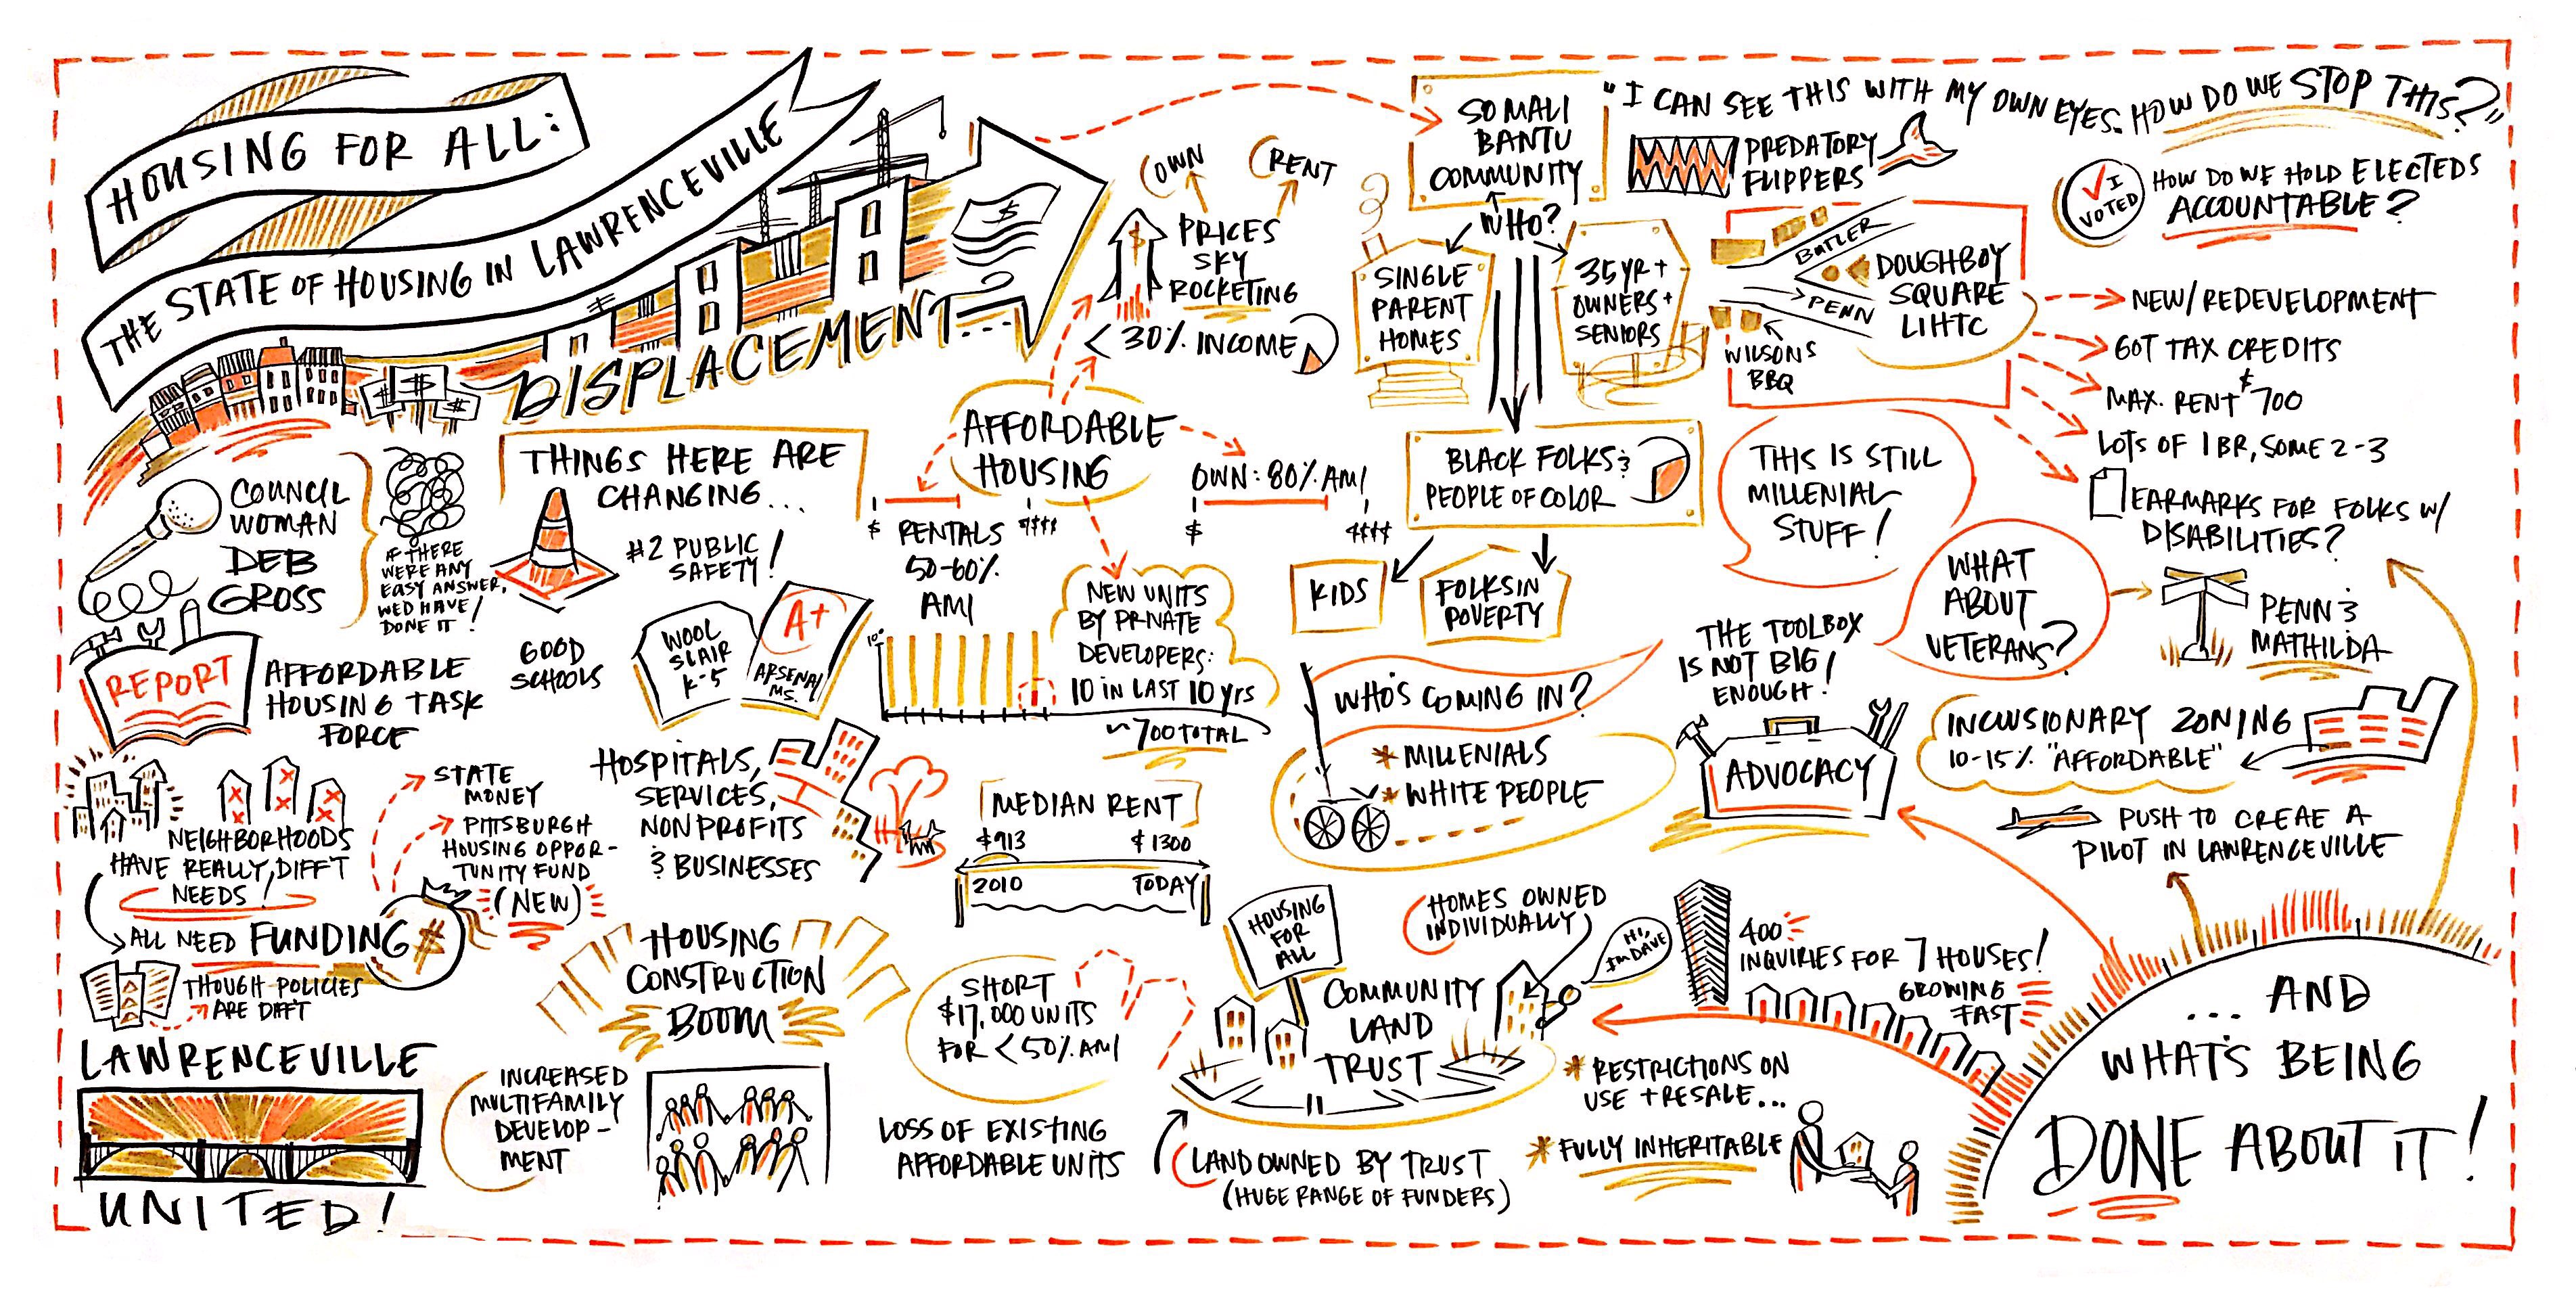 HOUSING FOR ALL:
THE STATE OF HOUSING IN LAWRENCEVILLE
$
$
$
$
DISPLACEMENT
COUNCIL
WOMAN
DEB
GROSS
IF THERE
WERE ANY
EASY ANSWER,
WE'D HAVE
DONE IT!
REPORT
AFFORDABLE
HOUSING TASK
FORCE
NEIGHBORHOODS
HAVE REALLY DIFF'T
NEEDS!
ALL NEED FUNDING
$
THOUGH POLICIES
ARE DIFF'T
STATE
MONEY
PITTSBURGH
HOUSING OPPOR-
TUNITY FUND
(NEW)
LAWRENCEVILLE
UNITED!
THINGS HERE ARE
CHANGING...
#2 PUBLIC
SAFETY!
GOOD
SCHOOLS
WOOL
SLAIR
K-5
A+
ARSENAL
MS.
HOSPITALS,
SERVICES,
NONPROFITS
& BUSINESSES
HOUSING
CONSTRUCTION
BOOM
INCREASED
MULTIFAMILY
DEVELOP-
MENT
OWN
RENT
$
PRICES
SKY
ROCKETING
< 30% INCOME
AFFORDABLE
HOUSING
$
$$$$
RENTALS
50-60%
AMI
OWN: 80% AMI
$
$$$$
NEW UNITS
BY PRIVATE
DEVELOPERS:
10 IN LAST 10 YRS
~700 TOTAL
MEDIAN RENT
$913
$1300
2010
TODAY
SHORT
$17,000 UNITS
FOR <50% AMI
LOSS OF EXISTING
AFFORDABLE UNITS
SOMALI
BANTU
COMMUNITY
WHO?
SINGLE
PARENT
HOMES
35 YR +
OWNERS +
SENIORS
BLACK FOLKS &
PEOPLE OF COLOR
KIDS
FOLKS IN
POVERTY
WHO'S COMING IN?
* MILLENIALS
* WHITE PEOPLE
HOUSING
FOR
ALL
HOMES OWNED
INDIVIDUALLY
HI,
I'M DAVE
COMMUNITY
LAND
TRUST
LAND OWNED BY TRUST
(HUGE RANGE OF FUNDERS)
* RESTRICTIONS ON
USE + RESALE...
* FULLY INHERITABLE
400
INQUIRIES FOR 7 HOUSES!
GROWING
FAST
"I CAN SEE THIS WITH MY OWN EYES. HOW DO WE STOP THIS?"
PREDATORY
FLIPPERS
I
VOTED
HOW DO WE HOLD ELECTEDS
ACCOUNTABLE?
BUTLER
PENN
DOUGHBOY
SQUARE
LIHTC
WILSONS
BBQ
NEW/REDEVELOPMENT
GOT TAX CREDITS
MAX. RENT $700
LOTS OF 1 BR, SOME 2-3
EARMARKS FOR FOLKS W/
DISABILITIES?
THIS IS STILL
MILLENIAL
STUFF!
WHAT
ABOUT
VETERANS?
PENN &
MATHILDA
THE TOOLBOX
IS NOT BIG
ENOUGH!
ADVOCACY
INCLUSIONARY ZONING
10-15% "AFFORDABLE"
PUSH TO CREAE A
PILOT IN LAWRENCEVILLE
...AND
WHAT'S BEING
DONE ABOUT IT!